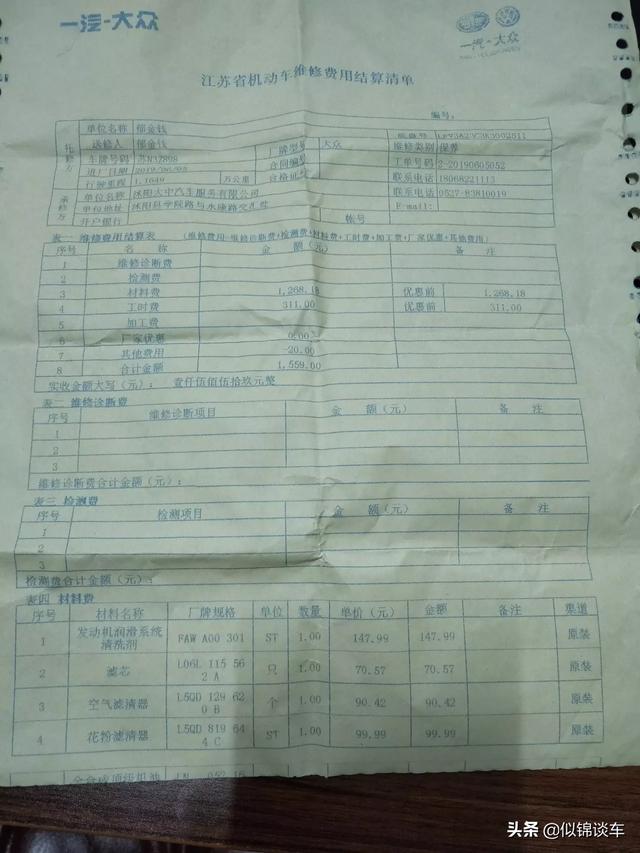 一汽-大众
一汽-大众
江苏省机动车维修费用结算清单
编号:
托修方 单位名称 郁金钱
送修人 郁金钱 厂牌型号 大众 维修类别 保养
车牌号码 苏N3Z898 合同编号 工单号码 2-20190605052
进厂日期 合格证号 联系电话 18068221113
行驶里程 1.1649 万公里
承修方 单位名称 沭阳大中汽车服务有限公司 联系电话 0527-83810019
单位地址 沭阳县学院路与永康路交汇处 E-mail:
开户银行 帐号
表一 维修费用结算表 (维修费用=维修诊断费+检测费+材料费+工时费+加工费+厂家优惠+其他费用)
序号 名 称 金 额(元) 备 注
1 维修诊断费
2 检测费
3 材料费 1,268.18 优惠前 1,268.18
4 工时费 311.00 优惠前 311.00
5 加工费
6 厂家优惠 0.00
7 其他费用 -20.00
8 合计金额 1,559.00
实收金额大写(元): 壹仟伍佰伍拾玖元整
表二 维修诊断费
序号 维修诊断项目 金 额(元) 备 注
1
2
3
维修诊断费合计金额(元):
表三 检测费
序号 检测项目 金 额(元) 备 注
1
2
3
检测费合计金额(元):
表四 材料费
序号 材料名称 厂牌规格 单位 数量 单价(元) 金额 备注 渠道
1 发动机润滑系统清洗剂 FAW A00 301 ST 1.00 147.99 147.99 原装
2 滤芯 L06L 115 562 A 只 1.00 70.57 70.57 原装
3 空气滤清器 L5QD 129 620 B 个 1.00 90.42 90.42 原装
4 花粉滤清器 L5QD 819 644 C ST 1.00 99.99 99.99 原装
全合成顶级机油
头条 @似锦谈车